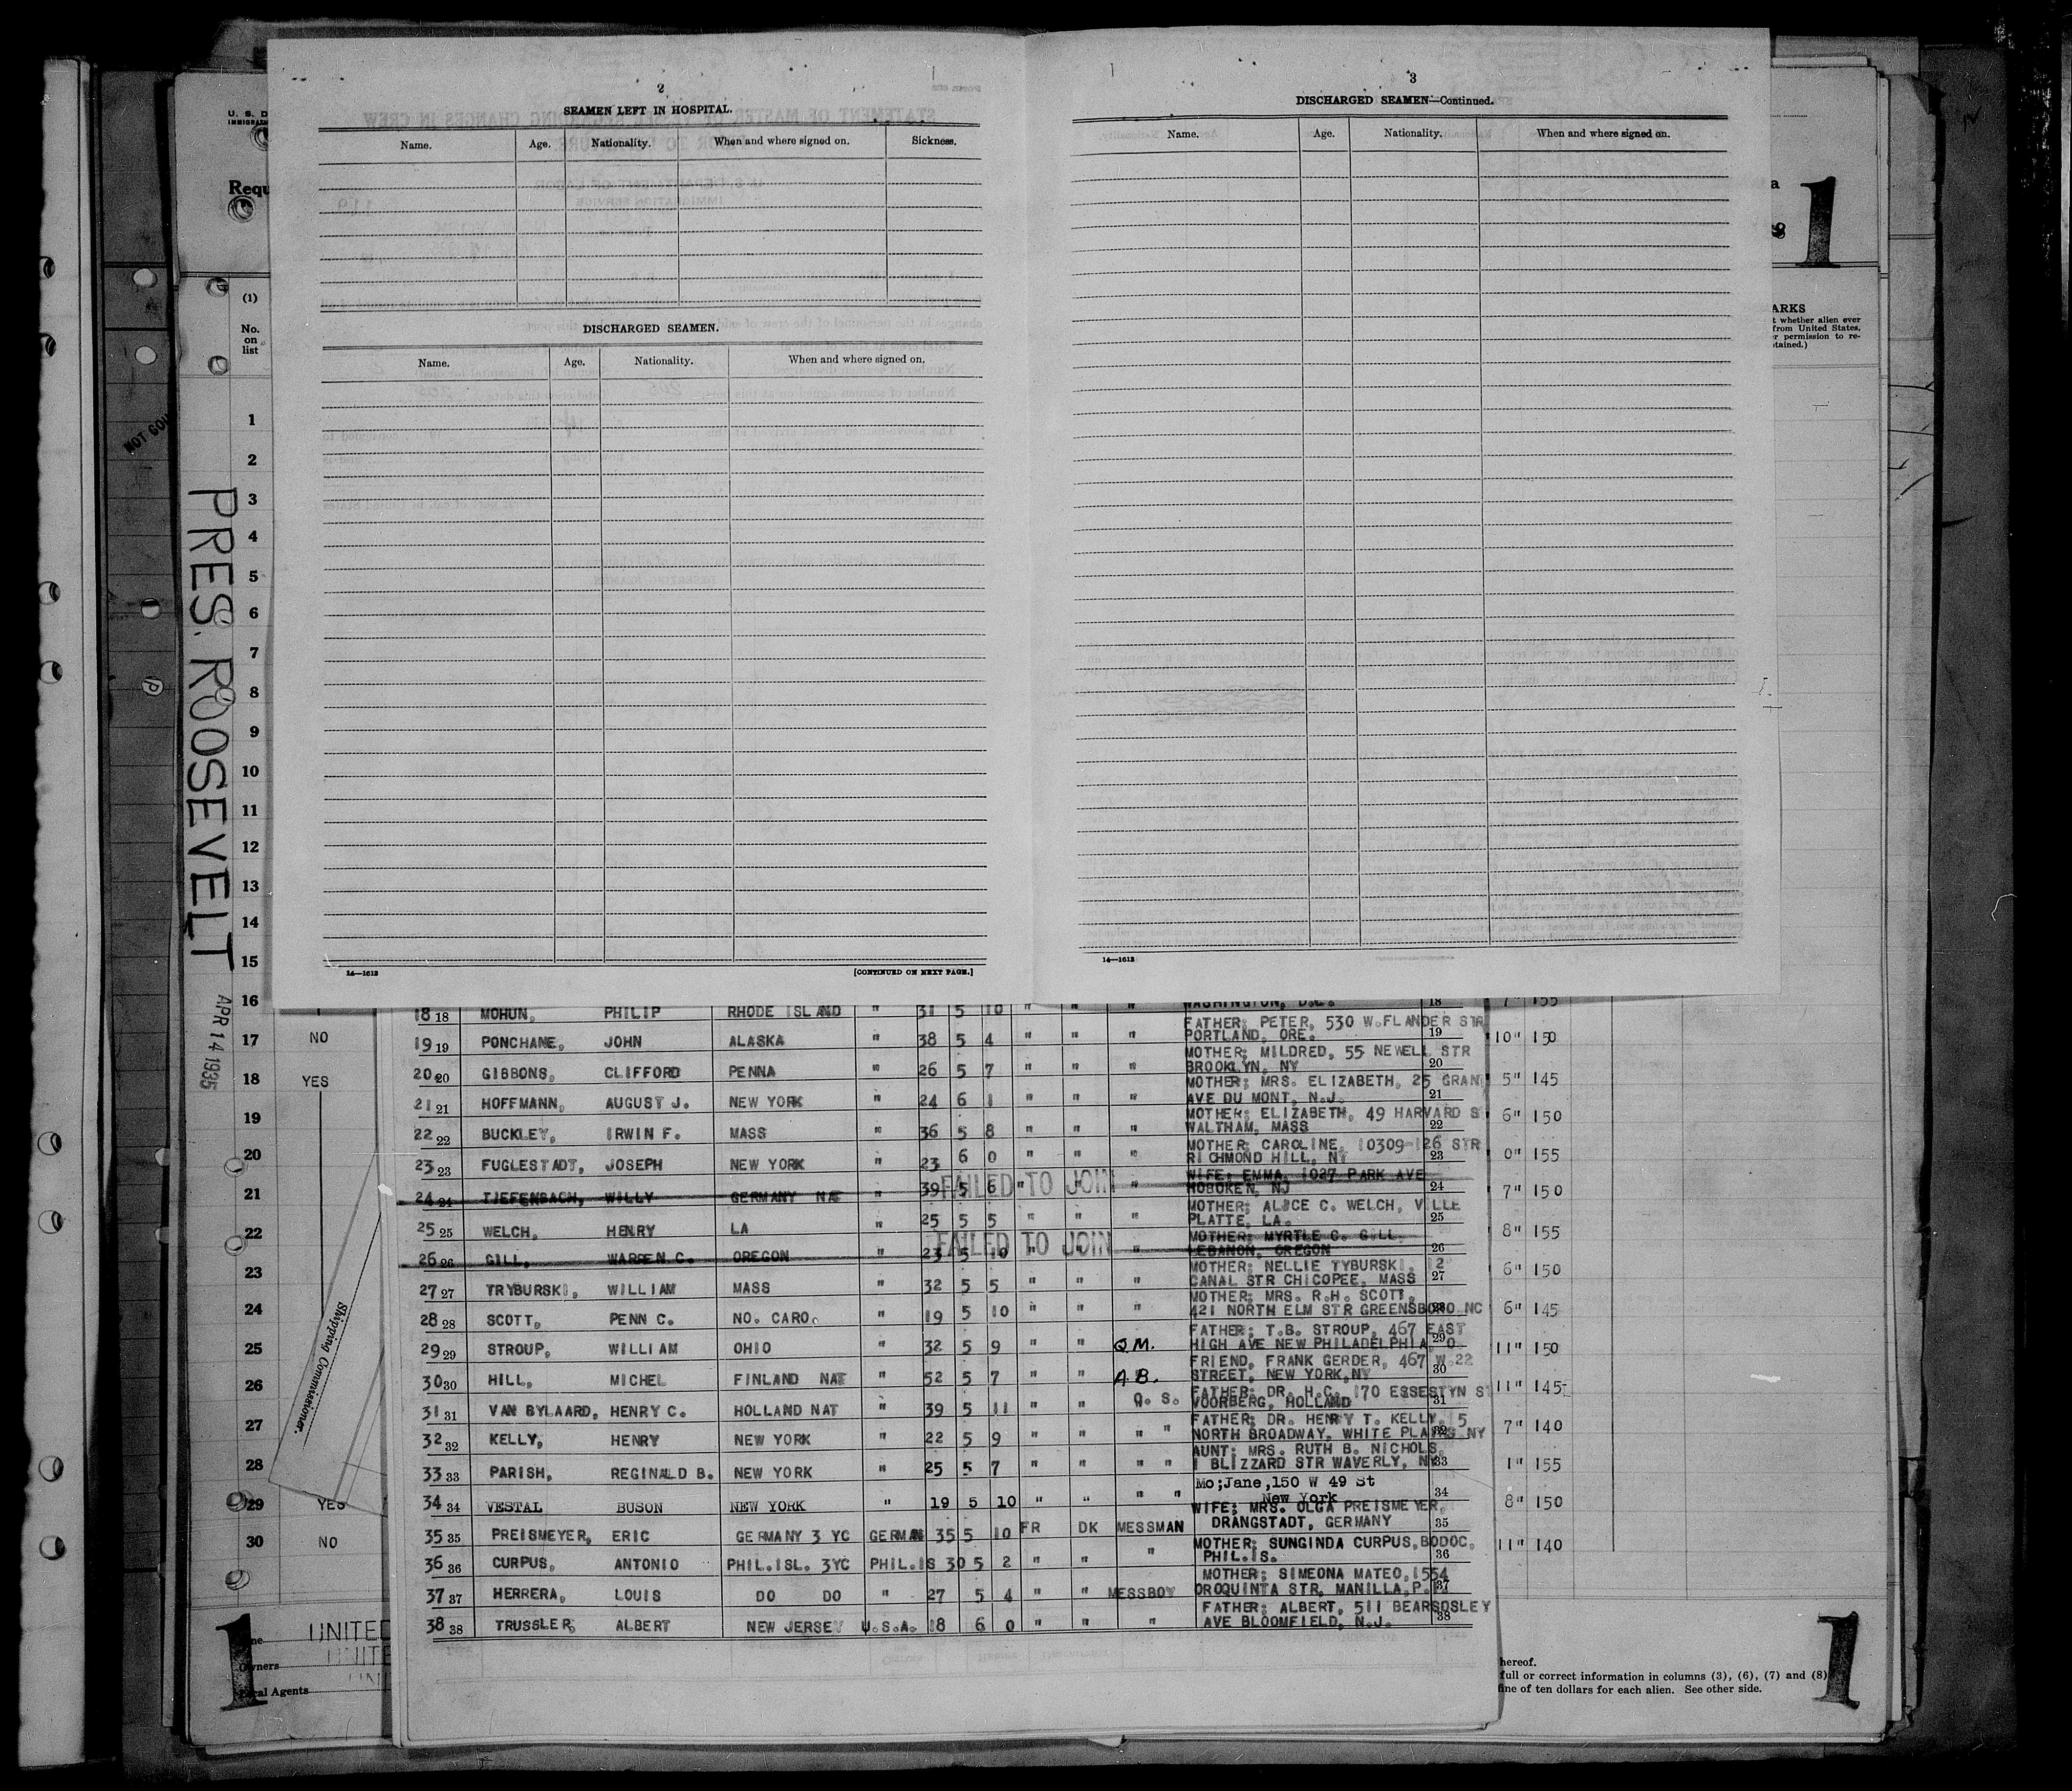 2
SEAMEN LEFT IN HOSPITAL.
Name. Age. Nationality. When and where signed on. Sickness.
DISCHARGED SEAMEN.
Name. Age. Nationality. When and where signed on.
14—1613
[CONTINUED ON NEXT PAGE.]
3
DISCHARGED SEAMEN—Continued.
Name. Age. Nationality. When and where signed on.
14—1613
U. S. D
IMMIGRAT
Requ
(1)
No.
on
list
1
2
3
4
5
6
7
8
9
10
11
12
13
14
15
16
17 NO
18 YES
19
20
21
22
23
24
25
26
27
28
29 YES
30 NO
PRES. ROOSEVELT
APR 14 1935
NOT GOU
Shipping Commissioner.
a
8
1
ARKS
t whether alien ever
from United States,
r permission to re-
tained.)
18 18 MOHUN, PHILIP RHODE ISLAND " 31 5 10 " " " WASHINGTON, D.C. 18
FATHER; PETER, 530 W.FLANDER STR
19 19 PONCHANE, JOHN ALASKA " 38 5 4 " " " PORTLAND, ORE. 19
MOTHER; MILDRED, 55 NEWELL STR
20 20 GIBBONS, CLIFFORD PENNA " 26 5 7 " " " BROOKLYN, NY 20
MOTHER; MRS. ELIZABETH, 25 GRAN
21 21 HOFFMANN, AUGUST J. NEW YORK " 24 6 1 " " " AVE DU MONT, N.J. 21
MOTHER; ELIZABETH, 49 HARVARD S
22 22 BUCKLEY, IRWIN F. MASS " 36 5 8 " " " WALTHAM, MASS 22
MOTHER; CAROLINE, 10309-126 STR
23 23 FUGLESTADT, JOSEPH NEW YORK " 23 6 0 " " " RICHMOND HILL, NY 23
WIFE; EMMA, 1027 PARK AVE
24 24 TIEFENBACH, WILLY GERMANY NAT " 39 5 6 " " " HOBOKEN, NJ 24
FAILED TO JOIN
MOTHER; ALICE C. WELCH, VILLE
25 25 WELCH, HENRY LA " 25 5 5 " " " PLATTE, LA. 25
MOTHER; MYRTLE C. GILL
26 26 GILL, WARREN C. OREGON " 23 5 10 " " " LEBANON, OREGON 26
FAILED TO JOIN
MOTHER; NELLIE TYBURSKI, 12
27 27 TRYBURSKI, WILLIAM MASS " 32 5 5 " " " CANAL STR CHICOPEE, MASS 27
MOTHER; MRS. R.H. SCOTT,
28 28 SCOTT, PENN C. NO. CARO. " 19 5 10 " " " 421 NORTH ELM STR GREENSBORO NC
FATHER; T.B. STROUP, 467 EAST
29 29 STROUP, WILLIAM OHIO " 32 5 9 " " Q.M. HIGH AVE NEW PHILADELPHIA, O. 29
FRIEND, FRANK GERDER, 467 W.22
30 30 HILL, MICHEL FINLAND NAT " 52 5 7 " " A.B. STREET, NEW YORK,NY 30
FATHER; DR. H.C. 170 ESSESTYN ST
31 31 VAN BYLAARD, HENRY C. HOLLAND NAT " 39 5 11 " " O. S. VOORBERG, HOLLAND 31
FATHER; DR. HENRY T. KELLY, 5
32 32 KELLY, HENRY NEW YORK " 22 5 9 " " " " NORTH BROADWAY, WHITE PLAINS NY
AUNT; MRS. RUTH B. NICHOLS,
33 33 PARISH, REGINALD B. NEW YORK " 25 5 7 " " " " 1 BLIZZARD STR WAVERLY, NY 33
Mo;Jane,150 W 49 St
34 34 VESTAL BUSON NEW YORK " 19 5 10 " " " " New York 34
WIFE; MRS. OLGA PREISMEYER,
35 35 PREISMEYER, ERIC GERMANY 3 YC GERMAN 35 5 10 FR DK MESSMAN DRANGSTADT, GERMANY 35
MOTHER; SUNGINDA CURPUS, BODOC,
36 36 CURPUS, ANTONIO PHIL.ISL. 3YC PHIL.IS 30 5 2 " " " PHIL.IS. 36
MOTHER; SIMEONA MATEO, 1554
37 37 HERRERA, LOUIS DO DO " 27 5 4 " " MESSBOY OROQUINTA STR, MANILLA, P. 37
FATHER; ALBERT, 511 BEARSDSLEY
38 38 TRUSSLER, ALBERT NEW JERSEY U.S.A. 18 6 0 " " " AVE BLOOMFIELD, N.J. 38
7" 155
10" 150
5" 145
6" 150
0" 155
7" 150
8" 155
6" 150
6" 145
11" 150
11" 145
7" 140
1" 155
8" 150
11" 140
1
UNITED
Owners UNITE
Local Agents UNI
hereof.
full or correct information in columns (3), (6), (7) and (8)
fine of ten dollars for each alien. See other side.
1